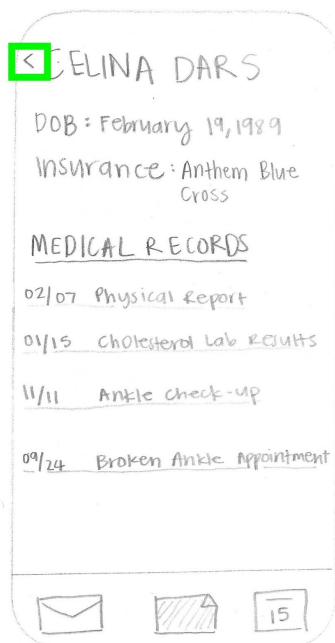 < CELINA DARS
DOB: February 19, 1989
Insurance: Anthem Blue
Cross
MEDICAL RECORDS
02/07 Physical Report
01/15 Cholesterol Lab Results
11/11 Ankle Check-up
09/24 Broken Ankle Appointment
15